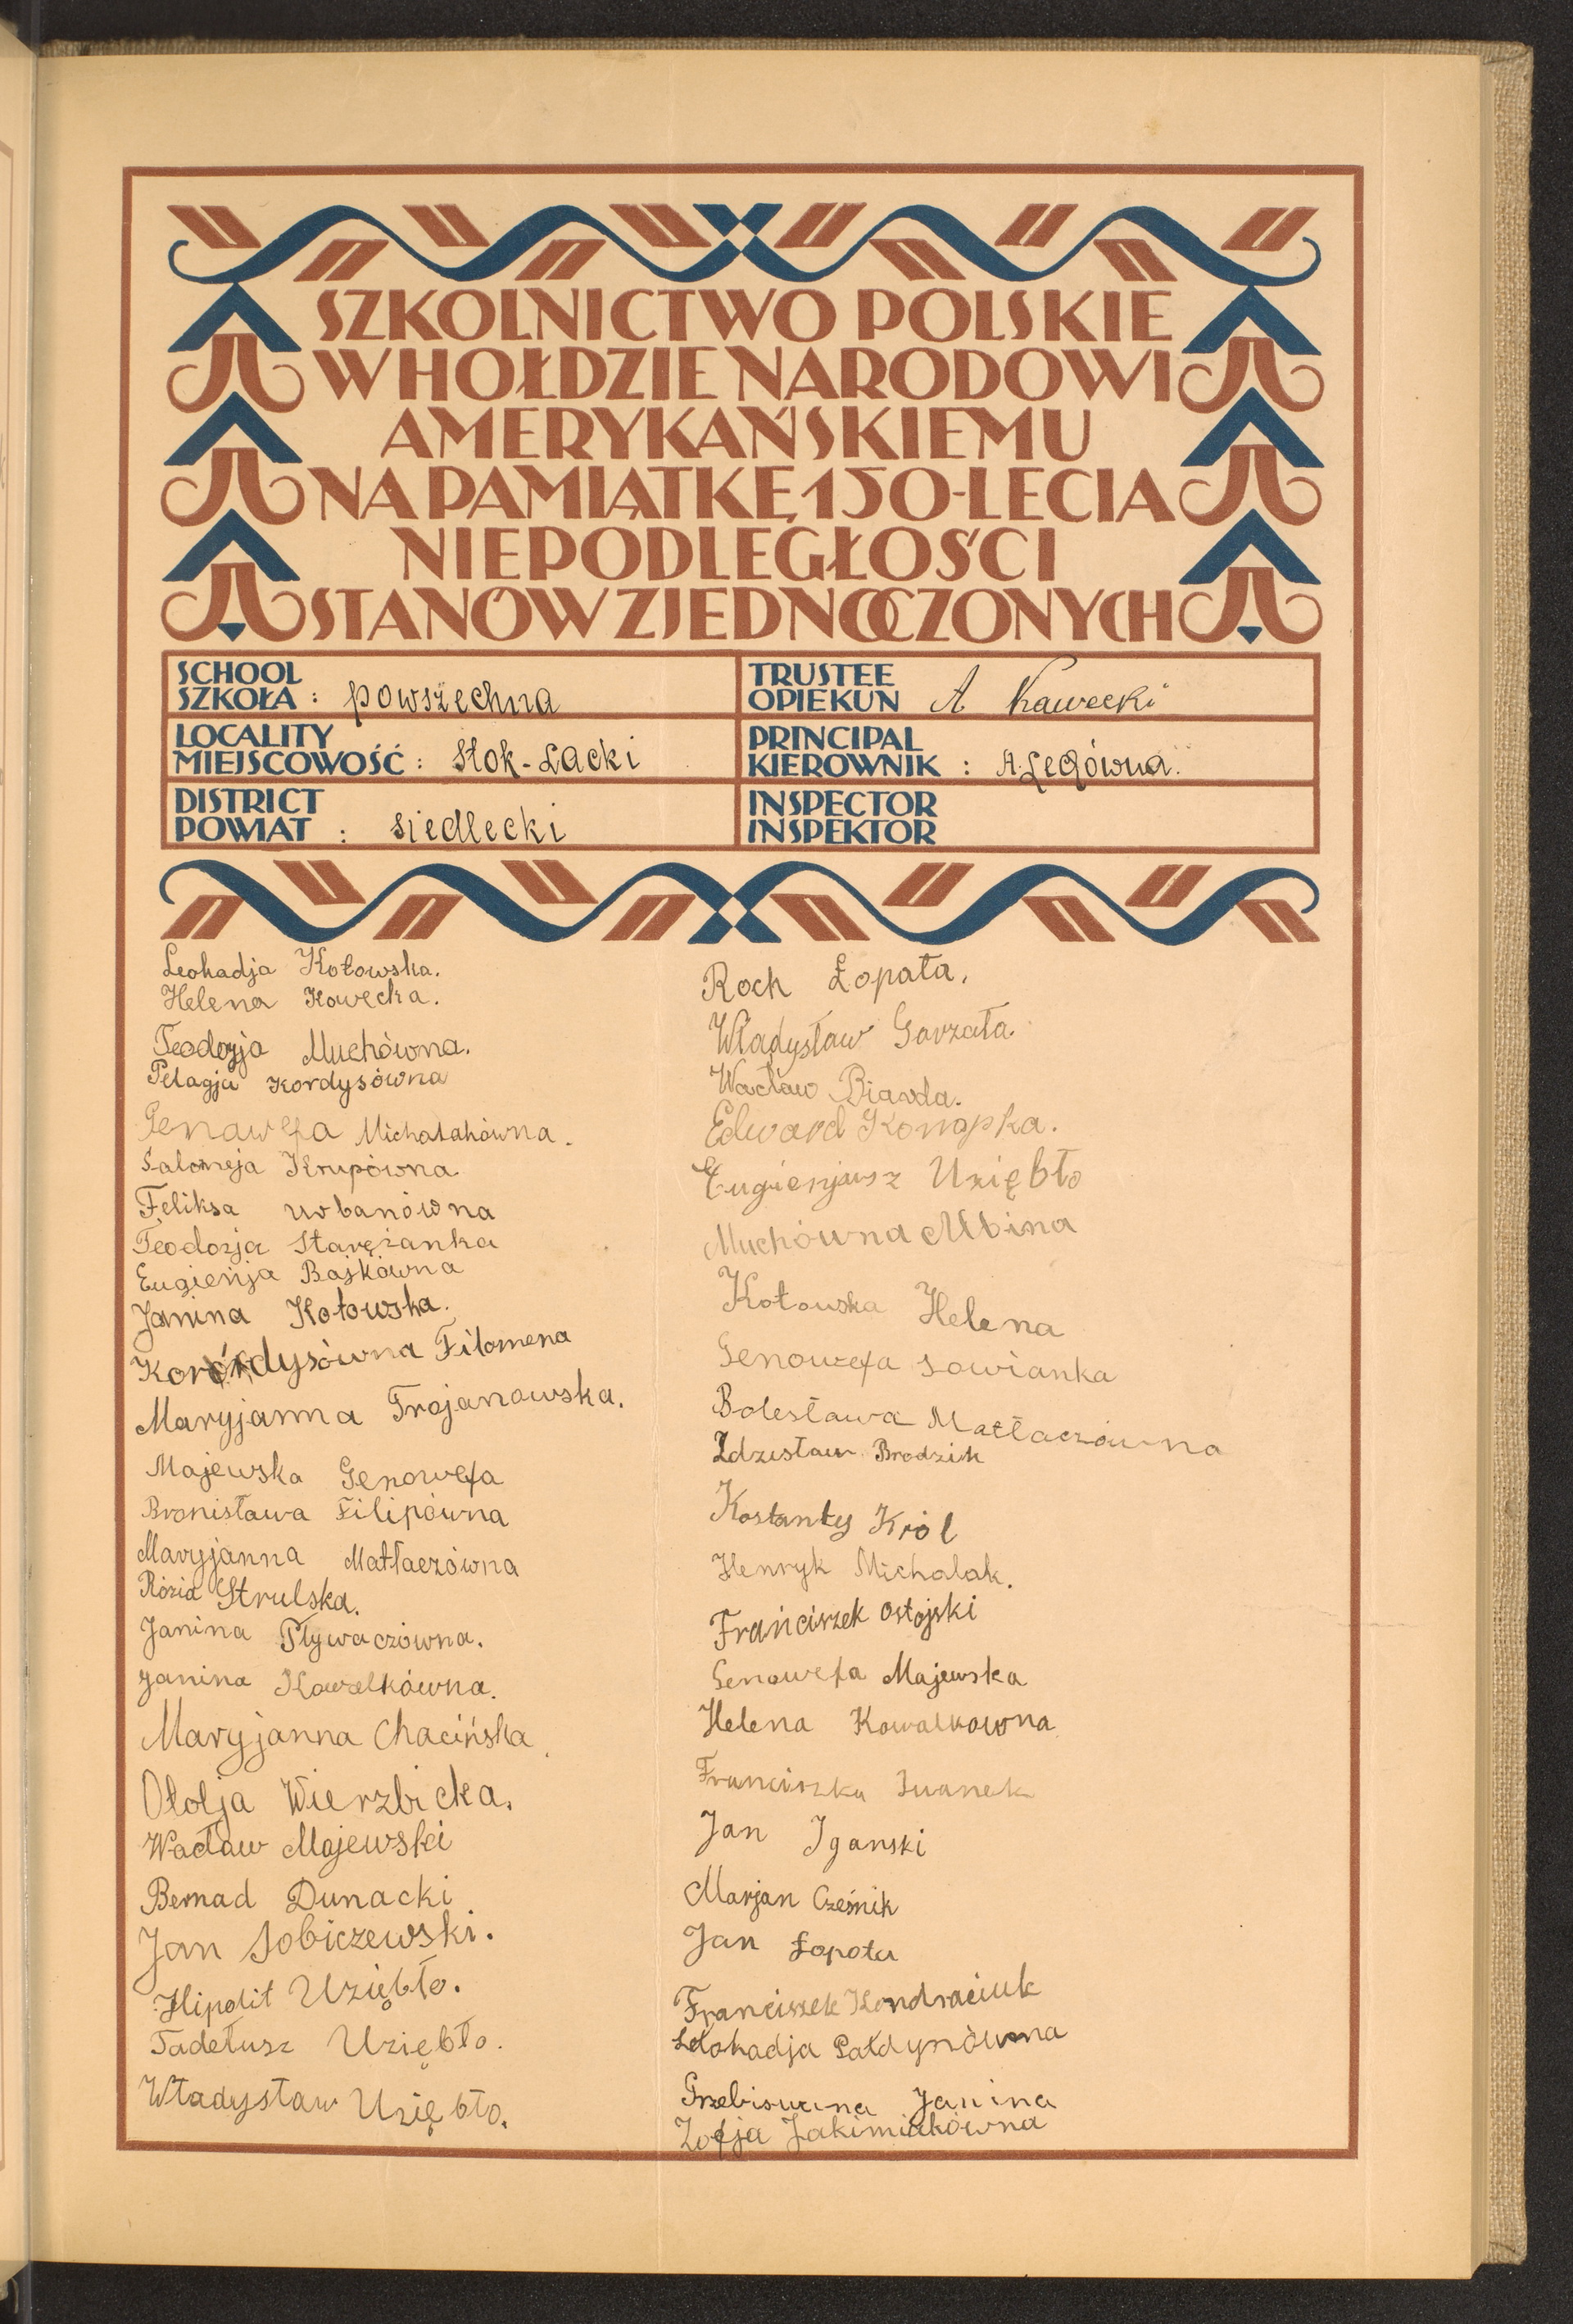 SZKOLNICTWO POLSKIE
W HOŁDZIE NARODOWI
AMERYKAŃSKIEMU
NA PAMIĄTKĘ 150-LECIA
NIEPODLEGŁOŚCI
STANÓW ZJEDNOCZONYCH
SCHOOL
SZKOŁA : powszechna
TRUSTEE
OPIEKUN A Kawecki
LOCALITY
MIEJSCOWOŚĆ : Stok-Lacki
PRINCIPAL
KIEROWNIK : A. Legówna.
DISTRICT
POWIAT : siedlecki
INSPECTOR
INSPEKTOR
Leohadja Kotowska.
Helena Kowecka.
Teodozja Muchówna.
Pelagja Kordysówna
Genawefa Michalahówna.
Salomeja Krupówna
Feliksa urbanówna
Teodozja Starężanka
Eugienja Bajkówna
Janina Kotowska.
Filomena
Maryjanna Trojanowska.
Majewska Genowefa
Bronisława Filipówna
Maryjanna Matłaczówna
Rózia Strulska.
Janina Pływaczówna.
Janina Kowelkówna.
Maryjanna Chacińska
Otolja Wierzbicka.
Wacław Majewski
Bernad Dunacki
Jan Sobiczewski.
Hipolit Uziębło.
Tadełusz Uziębło.
Władysław Uziębło.
Roch Łopata.
Władysław Gorzała
Wacław Biarda.
Edward Konopka.
Eugienjusz Uziębło
Muchówna Albina
Kotowska Helena
Genowefa Sowianka
Bolesława Matłaczówna
Zdzisław Brodzik
Kostanty Król
Henryk Michalak.
Frańciszek Ostojski
Genowefa Majewska
Helena Kowalkowna
Franciszka Iwanek
Jan Iganski
Marjan Cześnik
Jan Łopota
Franciszek Kondraciuk
Leokadja Pałdynówna
Janina
Zofja Jakimiakówna